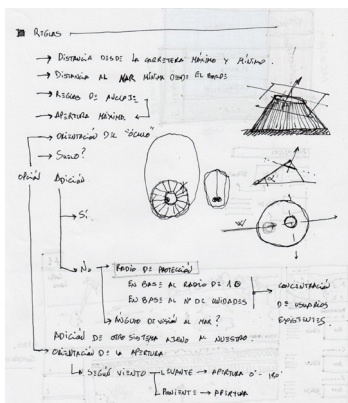 REGLAS
→ DISTANCIA DESDE LA CARRETERA MÁXIMO Y MÍNIMO.
→ DISTANCIA AL MAR MÍNIMA DESDE EL BORDE
→ REGLAS DE ANCLAJE
→ APERTURA MÁXIMA
→ ORIENTACIÓN DEL "ÓCULO"
→ SUELO?
OPCIÓN ADICIÓN
→ SÍ.
→ NO
RADIO DE PROTECCIÓN
EN BASE AL RADIO DE 1
EN BASE AL Nº DE UNIDADES
→ CONCENTRACIÓN
DE USUARIOS
EXISTENTES.
→ ÁNGULO DE VISIÓN AL MAR?
ADICIÓN DE OTRO SISTEMA AJENO AL NUESTRO.
ORIENTACIÓN DE LA APERTURA
→ SEGÚN VIENTO
LEVANTE → APERTURA 0º - 180º
PONIENTE → APERTURA
α
W